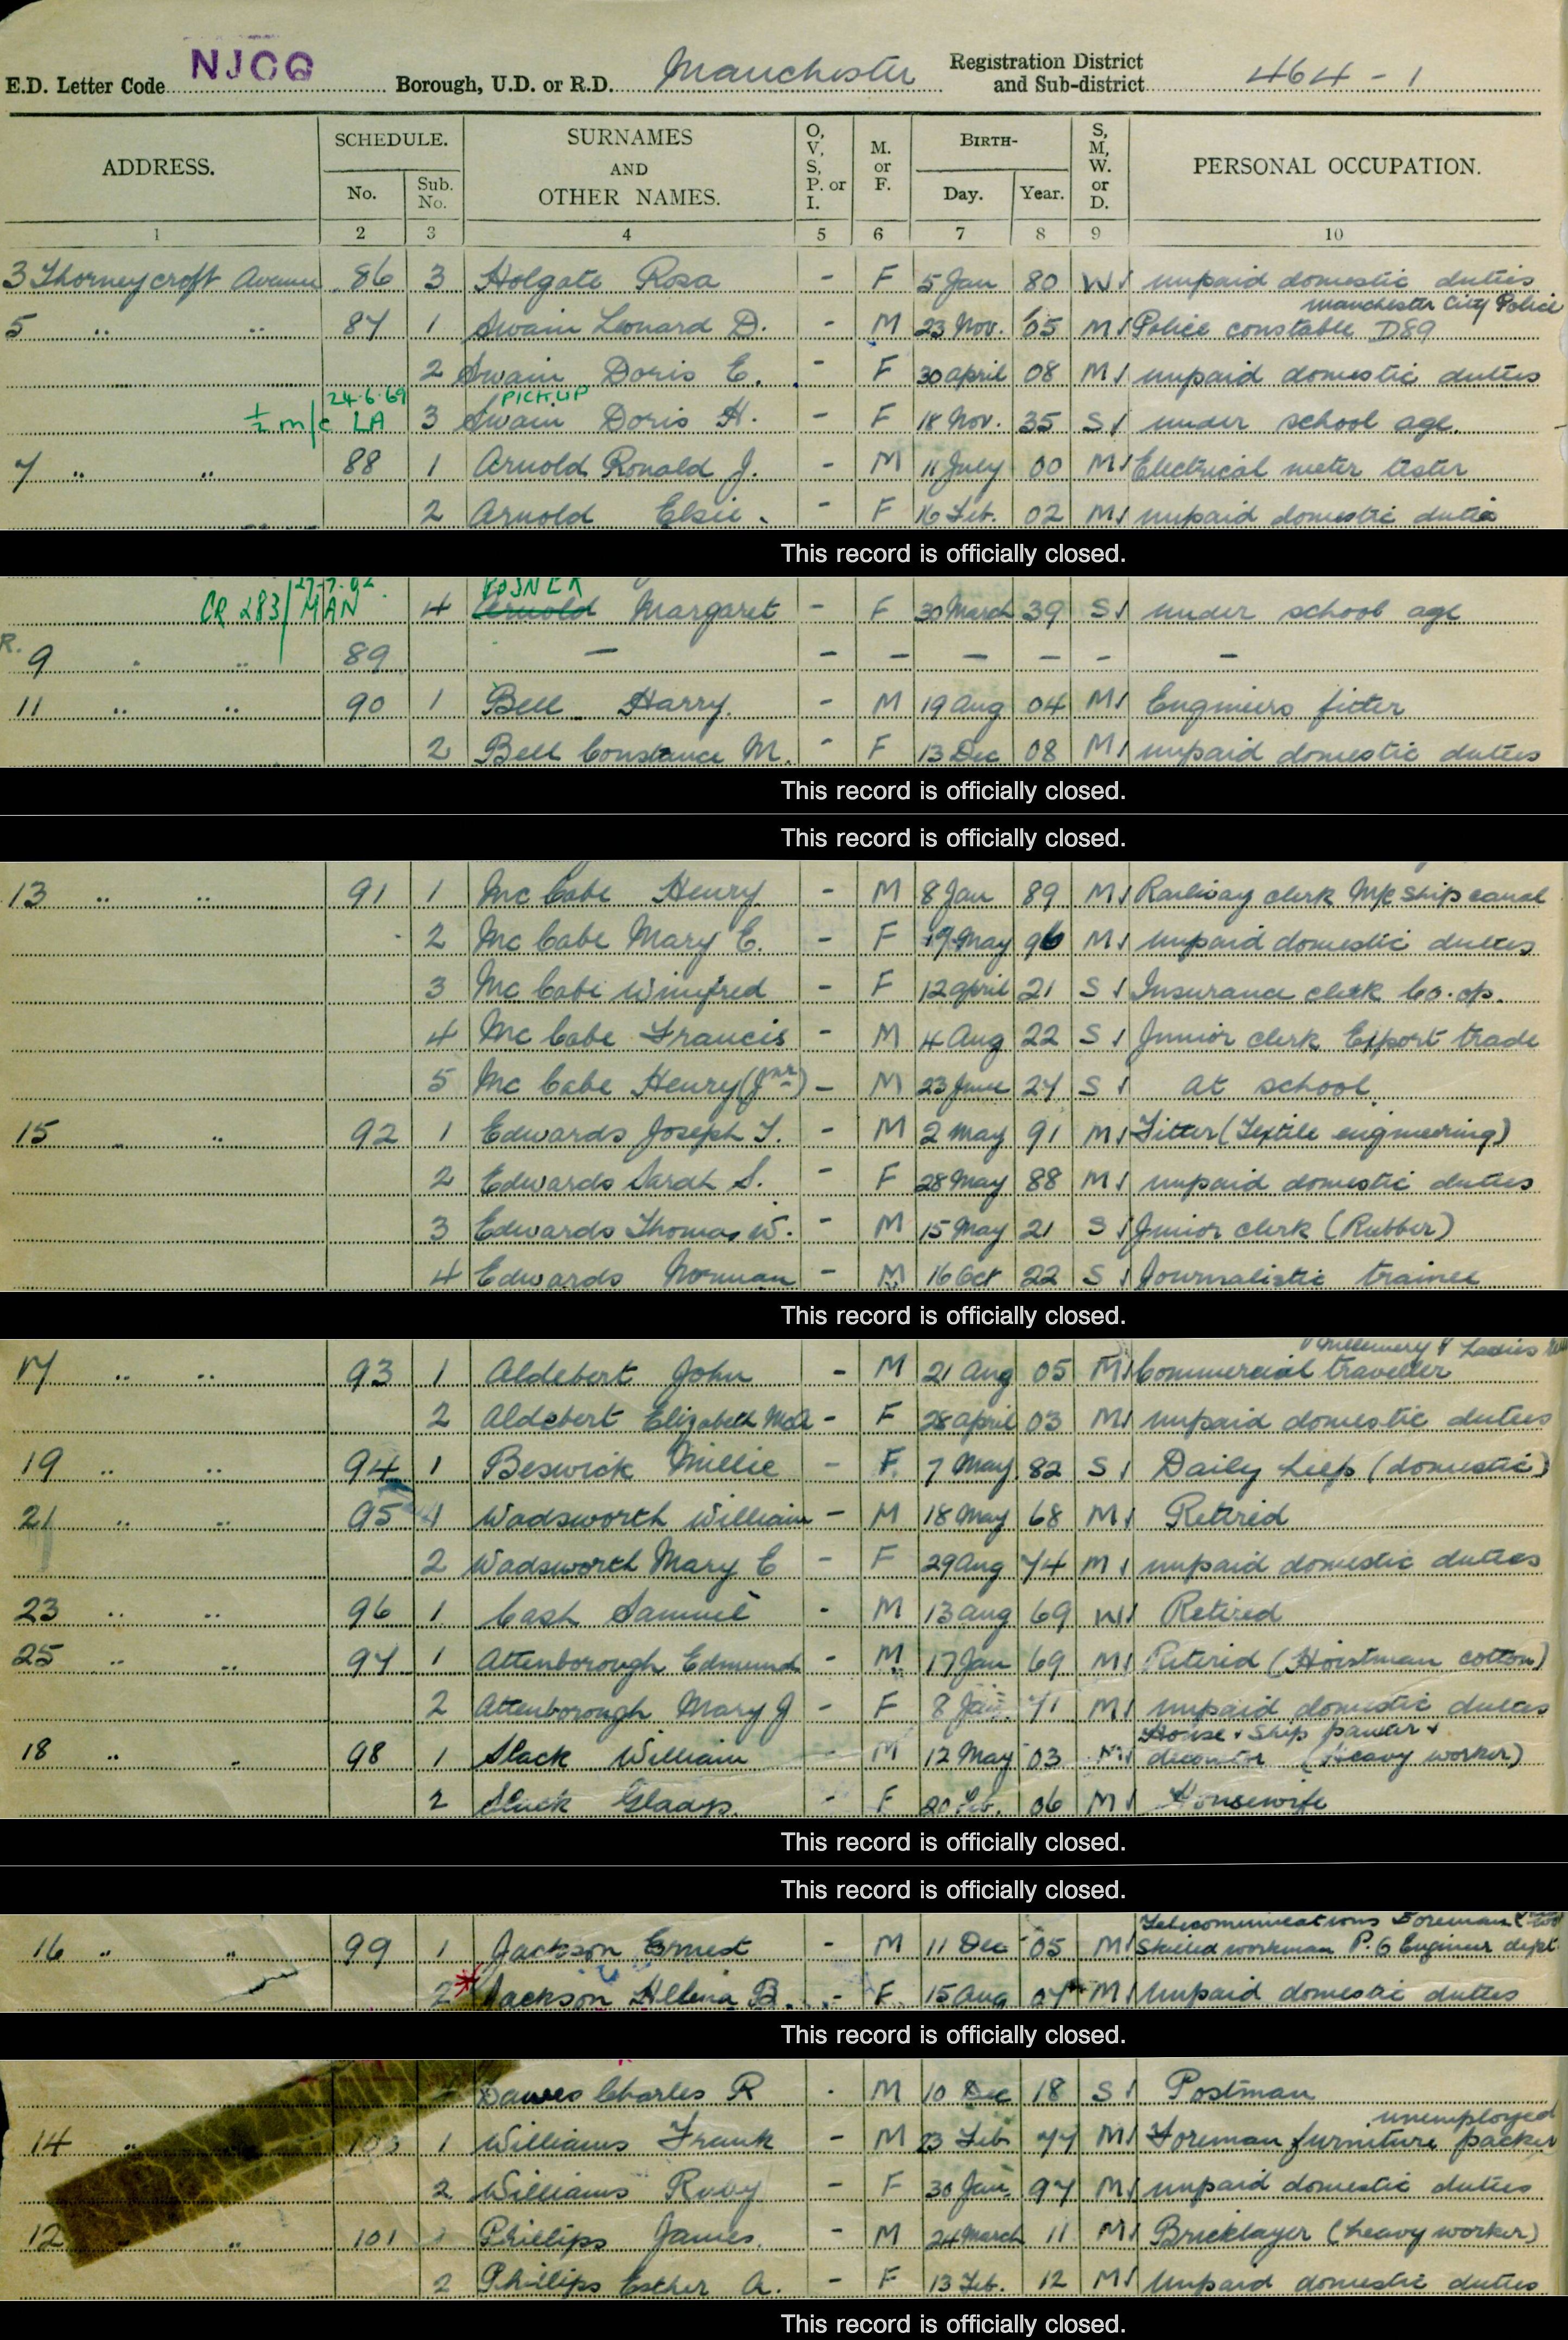 E.D. Letter Code NJCQ Borough, U.D. or R.D. Manchester Registration District and Sub-district 464-1
ADDRESS. SCHEDULE. No. Sub. No. SURNAMES AND OTHER NAMES. O, V, S, P. or I. M. or F. BIRTH- Day. Year. S, M, W. or D. PERSONAL OCCUPATION.
1 2 3 4 5 6 7 8 9 10
3 Thorneycroft Avenue 86 3 Holgate Rosa - F 5 Jan 80 W unpaid domestic duties
Manchester City Police
5 " " 87 1 Swain Leonard D. - M 23 Nov. 05 M Police constable D89
2 Swain Doris E. - F 30 April 08 M unpaid domestic duties
24.6.69 PICKUP
m/c LA 3 Swain Doris H. - F 18 Nov. 35 S under school age.
7 " " 88 1 Arnold Ronald J. - M 11 July 00 M Electrical meter tester
2 Arnold Elsie. - F 16 Feb. 02 M unpaid domestic duties
This record is officially closed.
CR 283/MAN 4 Arnold Margaret - F 30 March 39 S under school age
R. 9 " " 89 - - - - - - -
11 " " 90 1 Bell Harry. - M 19 Aug 04 M Engineers fitter
2 Bell Constance M. - F 13 Dec 08 M unpaid domestic duties
This record is officially closed.
This record is officially closed.
13 " " 91 1 McCabe Henry - M 8 Jan 89 M Railway clerk M/c Ship canal
2 McCabe Mary E. - F 19 May 96 M unpaid domestic duties
3 McCabe Winifred - F 12 April 21 S Insurance clerk Co.op.
4 McCabe Francis - M 4 Aug 22 S Junior clerk Export trade
5 McCabe Henry (Jnr) - M 23 June 27 S at school.
15 " " 92 1 Edwards Joseph T. - M 2 May 91 M Fitter (Textile engineering)
2 Edwards Sarah S. - F 28 May 88 M unpaid domestic duties
3 Edwards Thomas W. - M 15 May 21 S Junior clerk (Rubber)
4 Edwards Norman - M 16 Oct 22 S Journalistic trainee
This record is officially closed.
Millinery & Ladies
17 " " 93 1 Aldebert John - M 21 Aug 05 M Commercial traveller
2 Aldebert Elizabeth McA - F 28 April 03 M unpaid domestic duties
19 " " 94 1 Beswick Millie - F. 7 May 82 S Daily help (domestic)
21 " " 95 1 Wadsworth William - M 18 May 68 M Retired
2 Wadsworth Mary E - F 29 Aug 74 M unpaid domestic duties
23 " " 96 1 Cash Samuel - M 13 Aug 69 W Retired
25 " " 97 1 Attenborough Edmund - M 17 Jan 69 M Retired (Hoistman cotton)
2 Attenborough Mary J - F 8 Jan 71 M unpaid domestic duties
House & Ship painter &
18 " " 98 1 Slack William - M 12 May 03 M decorator (Heavy worker)
2 Slack Gladys. - F 20 Feb. 06 M Housewife
This record is officially closed.
This record is officially closed.
Telecommunications Foreman
16 " " 99 1 Jackson Ernest - M 11 Dec 05 M Skilled workman P.O Engineer dept.
2 Jackson Hellena B. - F. 15 Aug 07 M Unpaid domestic duties
This record is officially closed.
Dawes Charles R - M 10 Dec 18 S Postman
unemployed
14 " " 1 Williams Frank - M 23 Feb 77 M Foreman furniture packer
2 Williams Ruby - F 30 Jan. 97 M unpaid domestic duties
12 " " 101 1 Phillips James. - M 24 March 11 M Bricklayer (heavy worker)
2 Phillips Esther A. - F 13 Feb. 12 M Unpaid domestic duties
This record is officially closed.